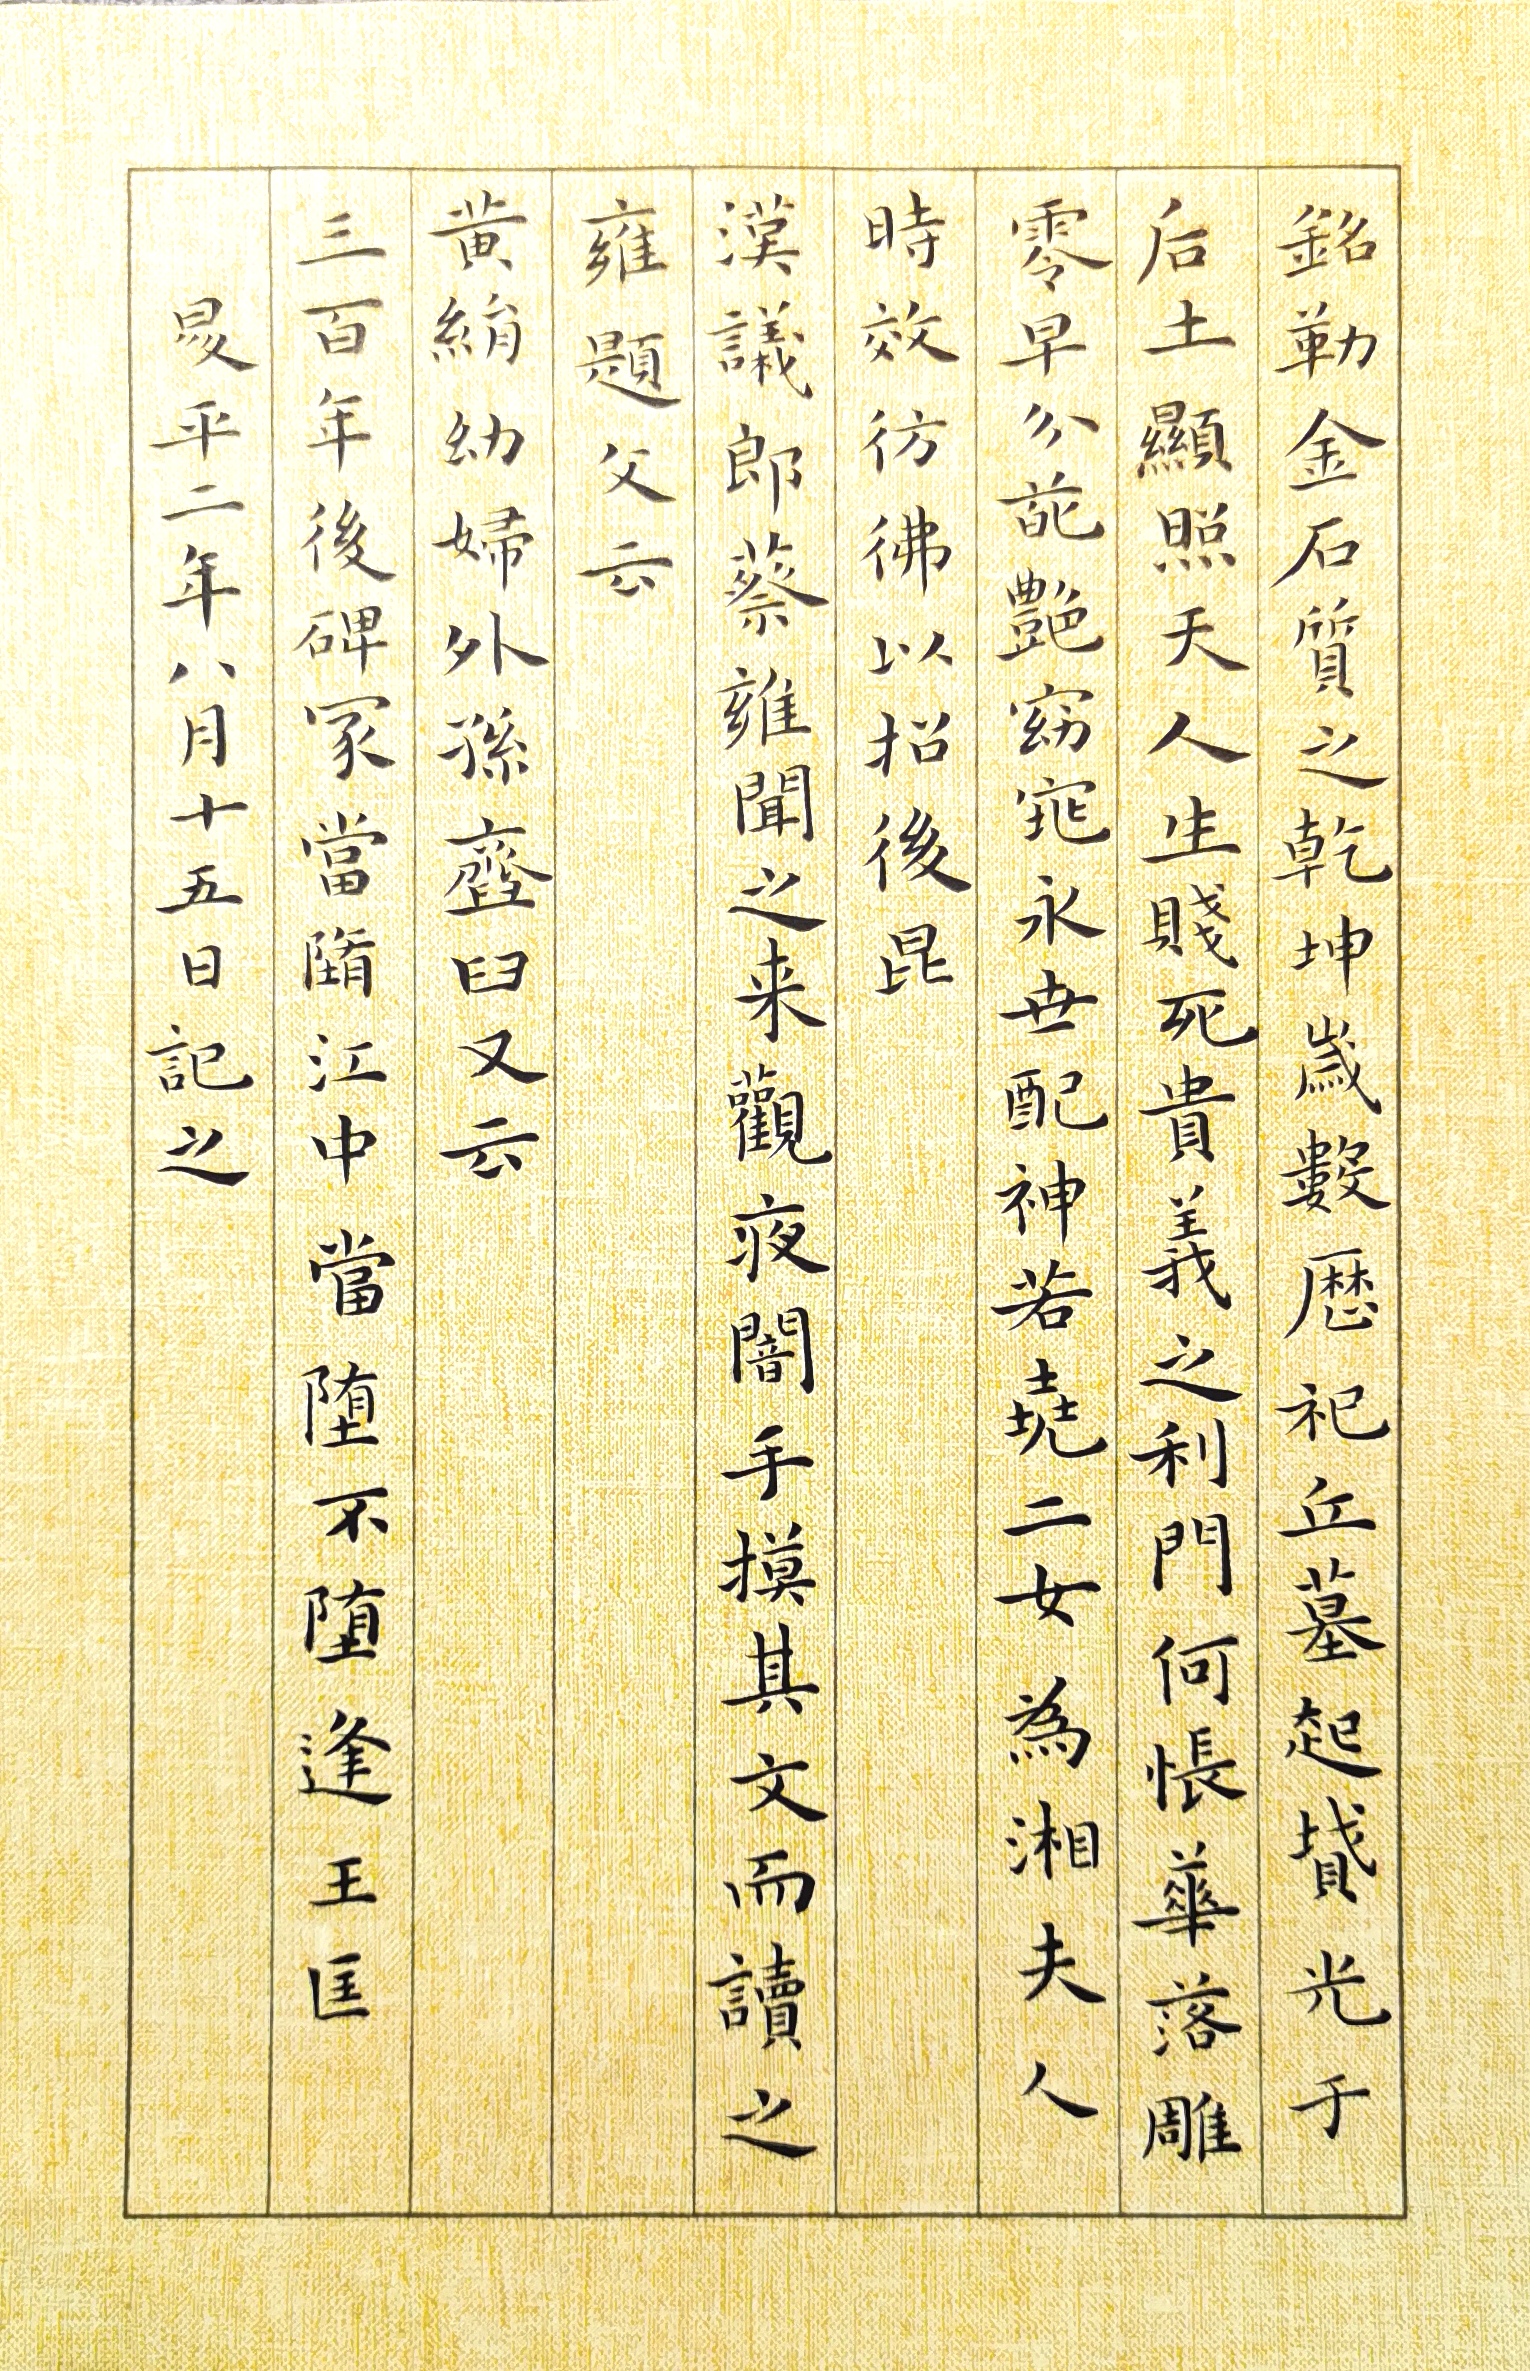 銘勒金石質之乾坤歲數歷祀丘墓起墳光于
后土顯照天人生賤死貴義之利門何悵華落雕
零早分葩艷窈窕永世配神若堯二女為湘夫人
時效彷彿以招後昆
漢議郎蔡雍聞之来觀夜闇手摸其文而讀之
雍題文云
黃絹幼婦外孫齏臼又云
三百年後碑冢當墮江中當墮不墮逢王匡
昇平二年八月十五日記之